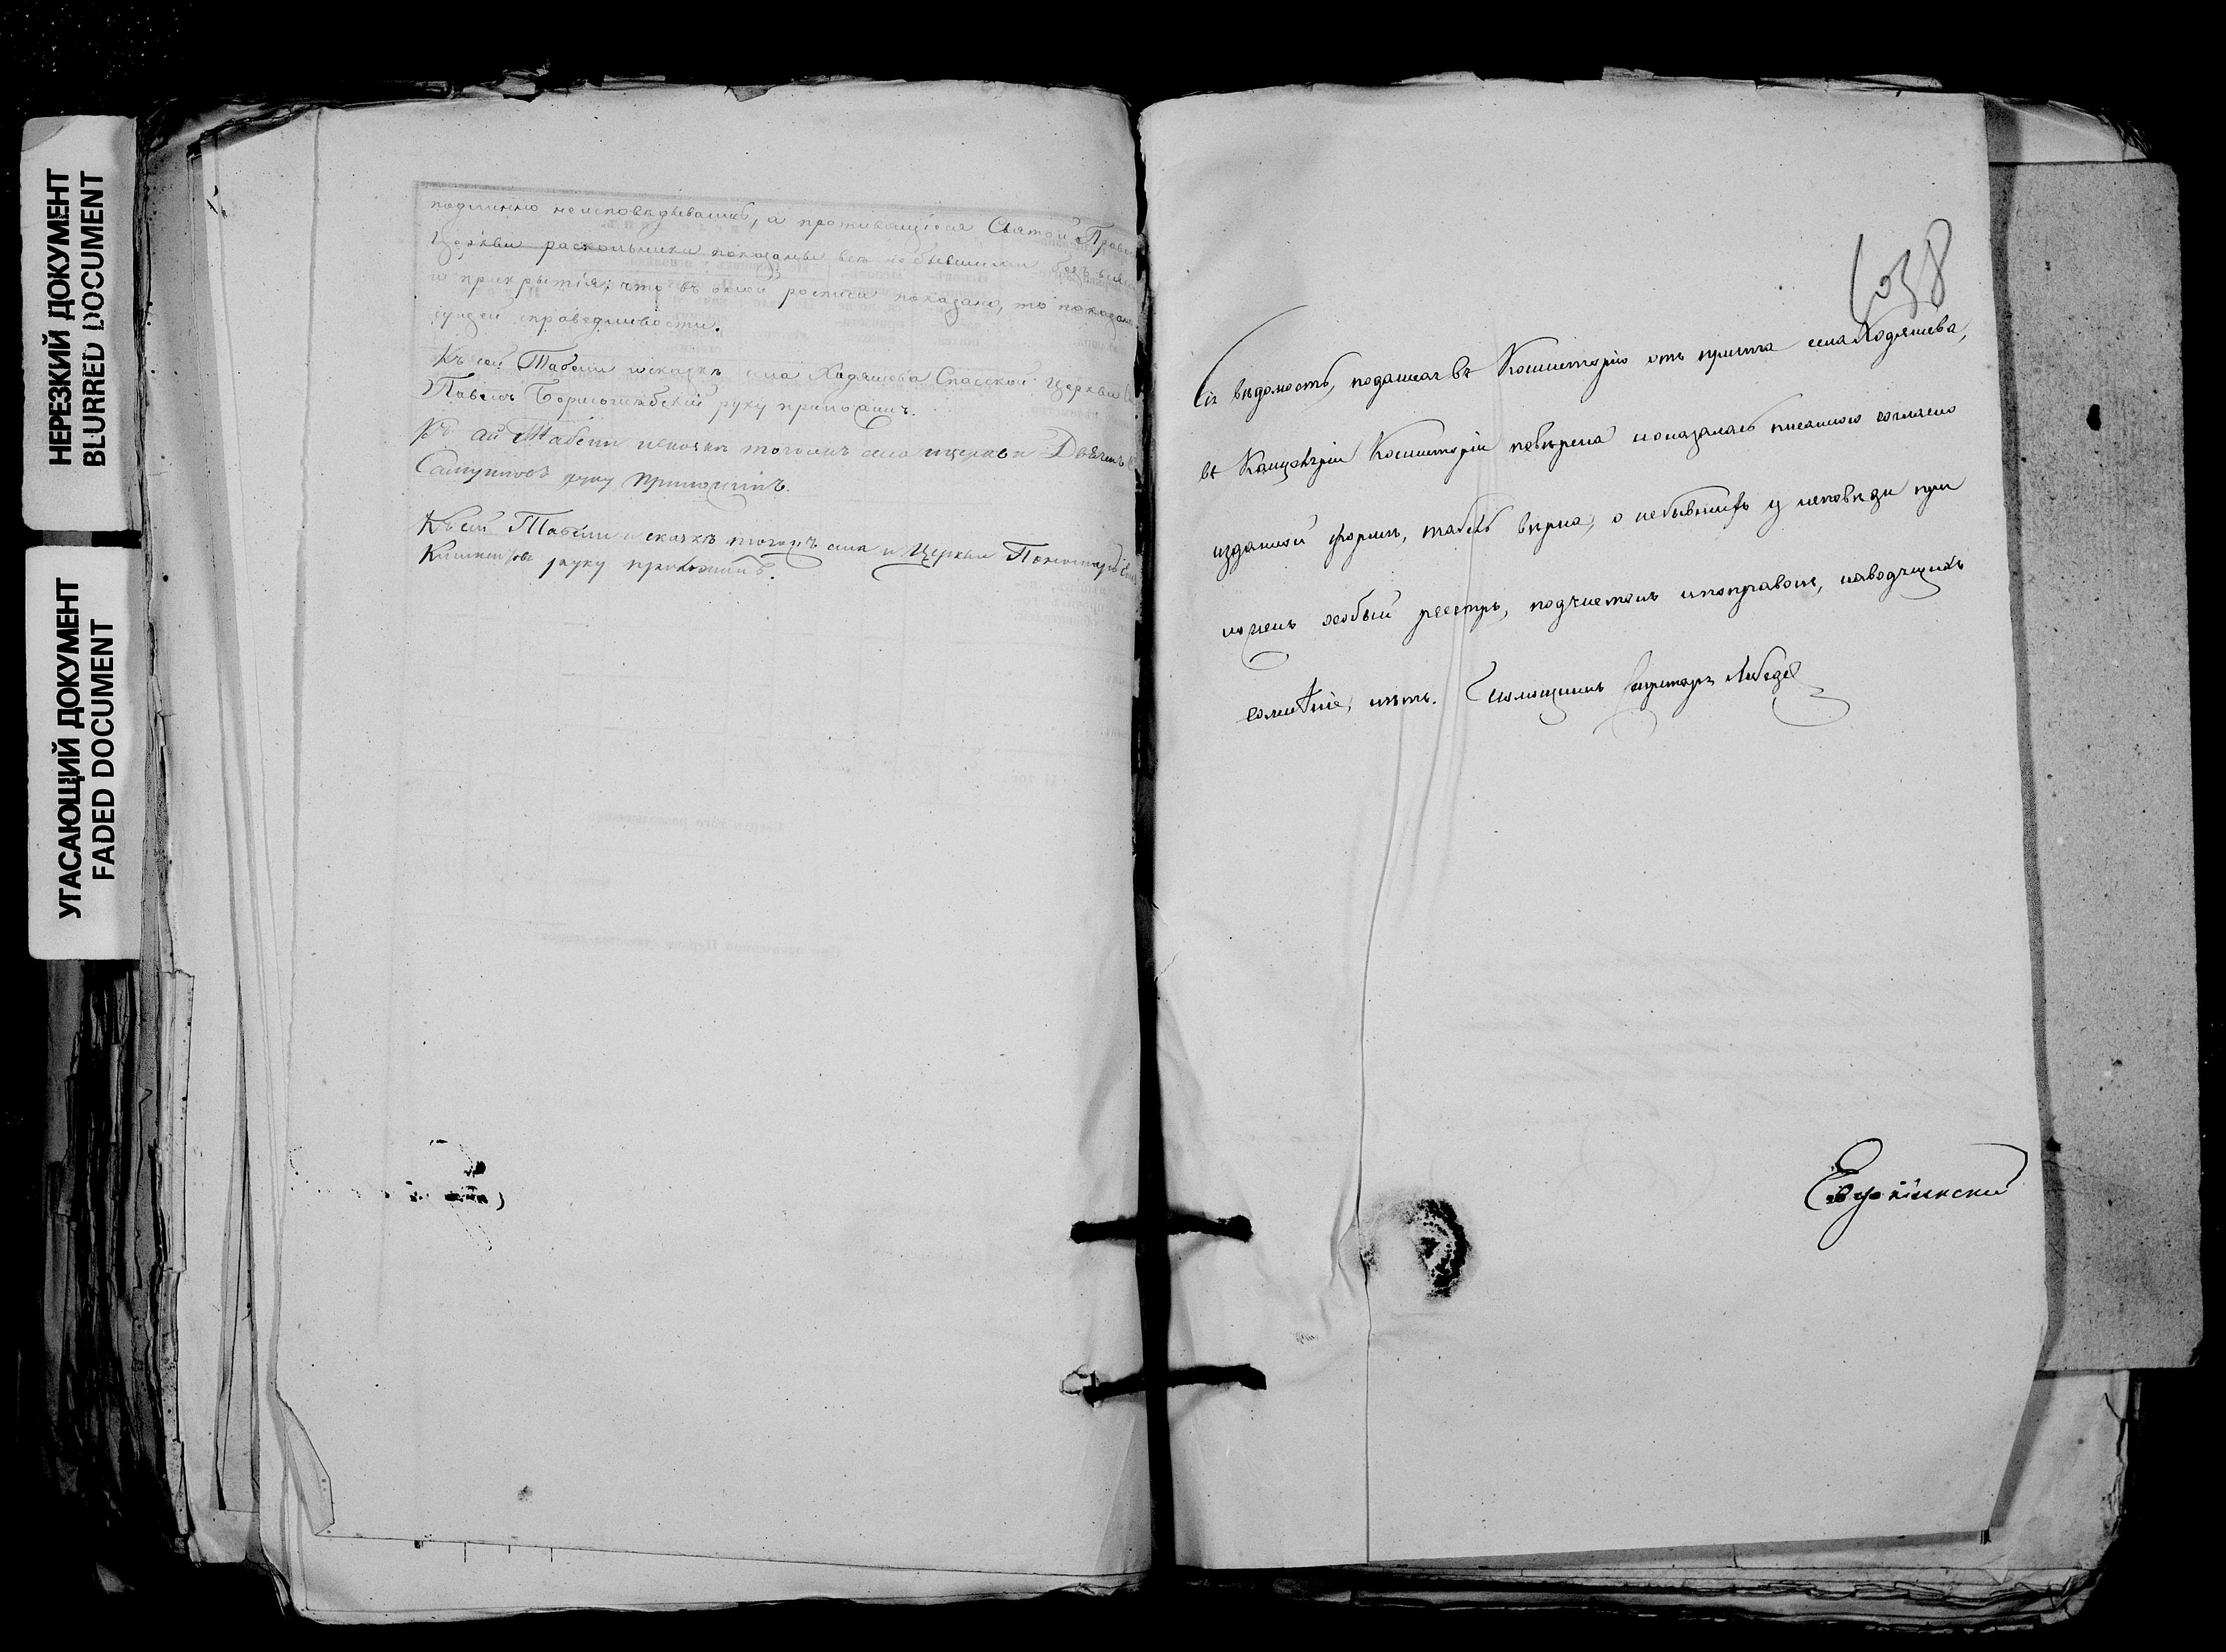 НЕРЕЗКИЙ ДОКУМЕНТ
BLURRED DOCUMENT
УГАСАЮЩИЙ ДОКУМЕНТ
FADED DOCUMENT
подлинно неисповѣдывались, а противящіеся Святой
Церкви раскольники показаны всѣ небывшими безъ
и прикрытія; что въ оной росписи показано, то показано
сущей справедливости.
Къ сей Табели и сказкѣ села Кадышева Спасской Церкви
Павелъ руку приложилъ.
Къ сей Табели и сказкѣ тогожъ села и церкви
руку приложилъ.
Къ сей Табели и сказкѣ тогожъ села и Церкви Пономарь
руку приложилъ.
1038
Сія вѣдомость, поданная въ Консисторію отъ причта села Кадышева,
въ Канцеляріи Консисторіи повѣрена и оказалась писанною согласно
изданной формѣ, табель вѣрна, о небывшихъ у исповѣди при
ложенъ особый реестръ, подчистокъ и поправокъ, наводящихъ
сомнѣніе, нѣтъ. Помощникъ Секретаря